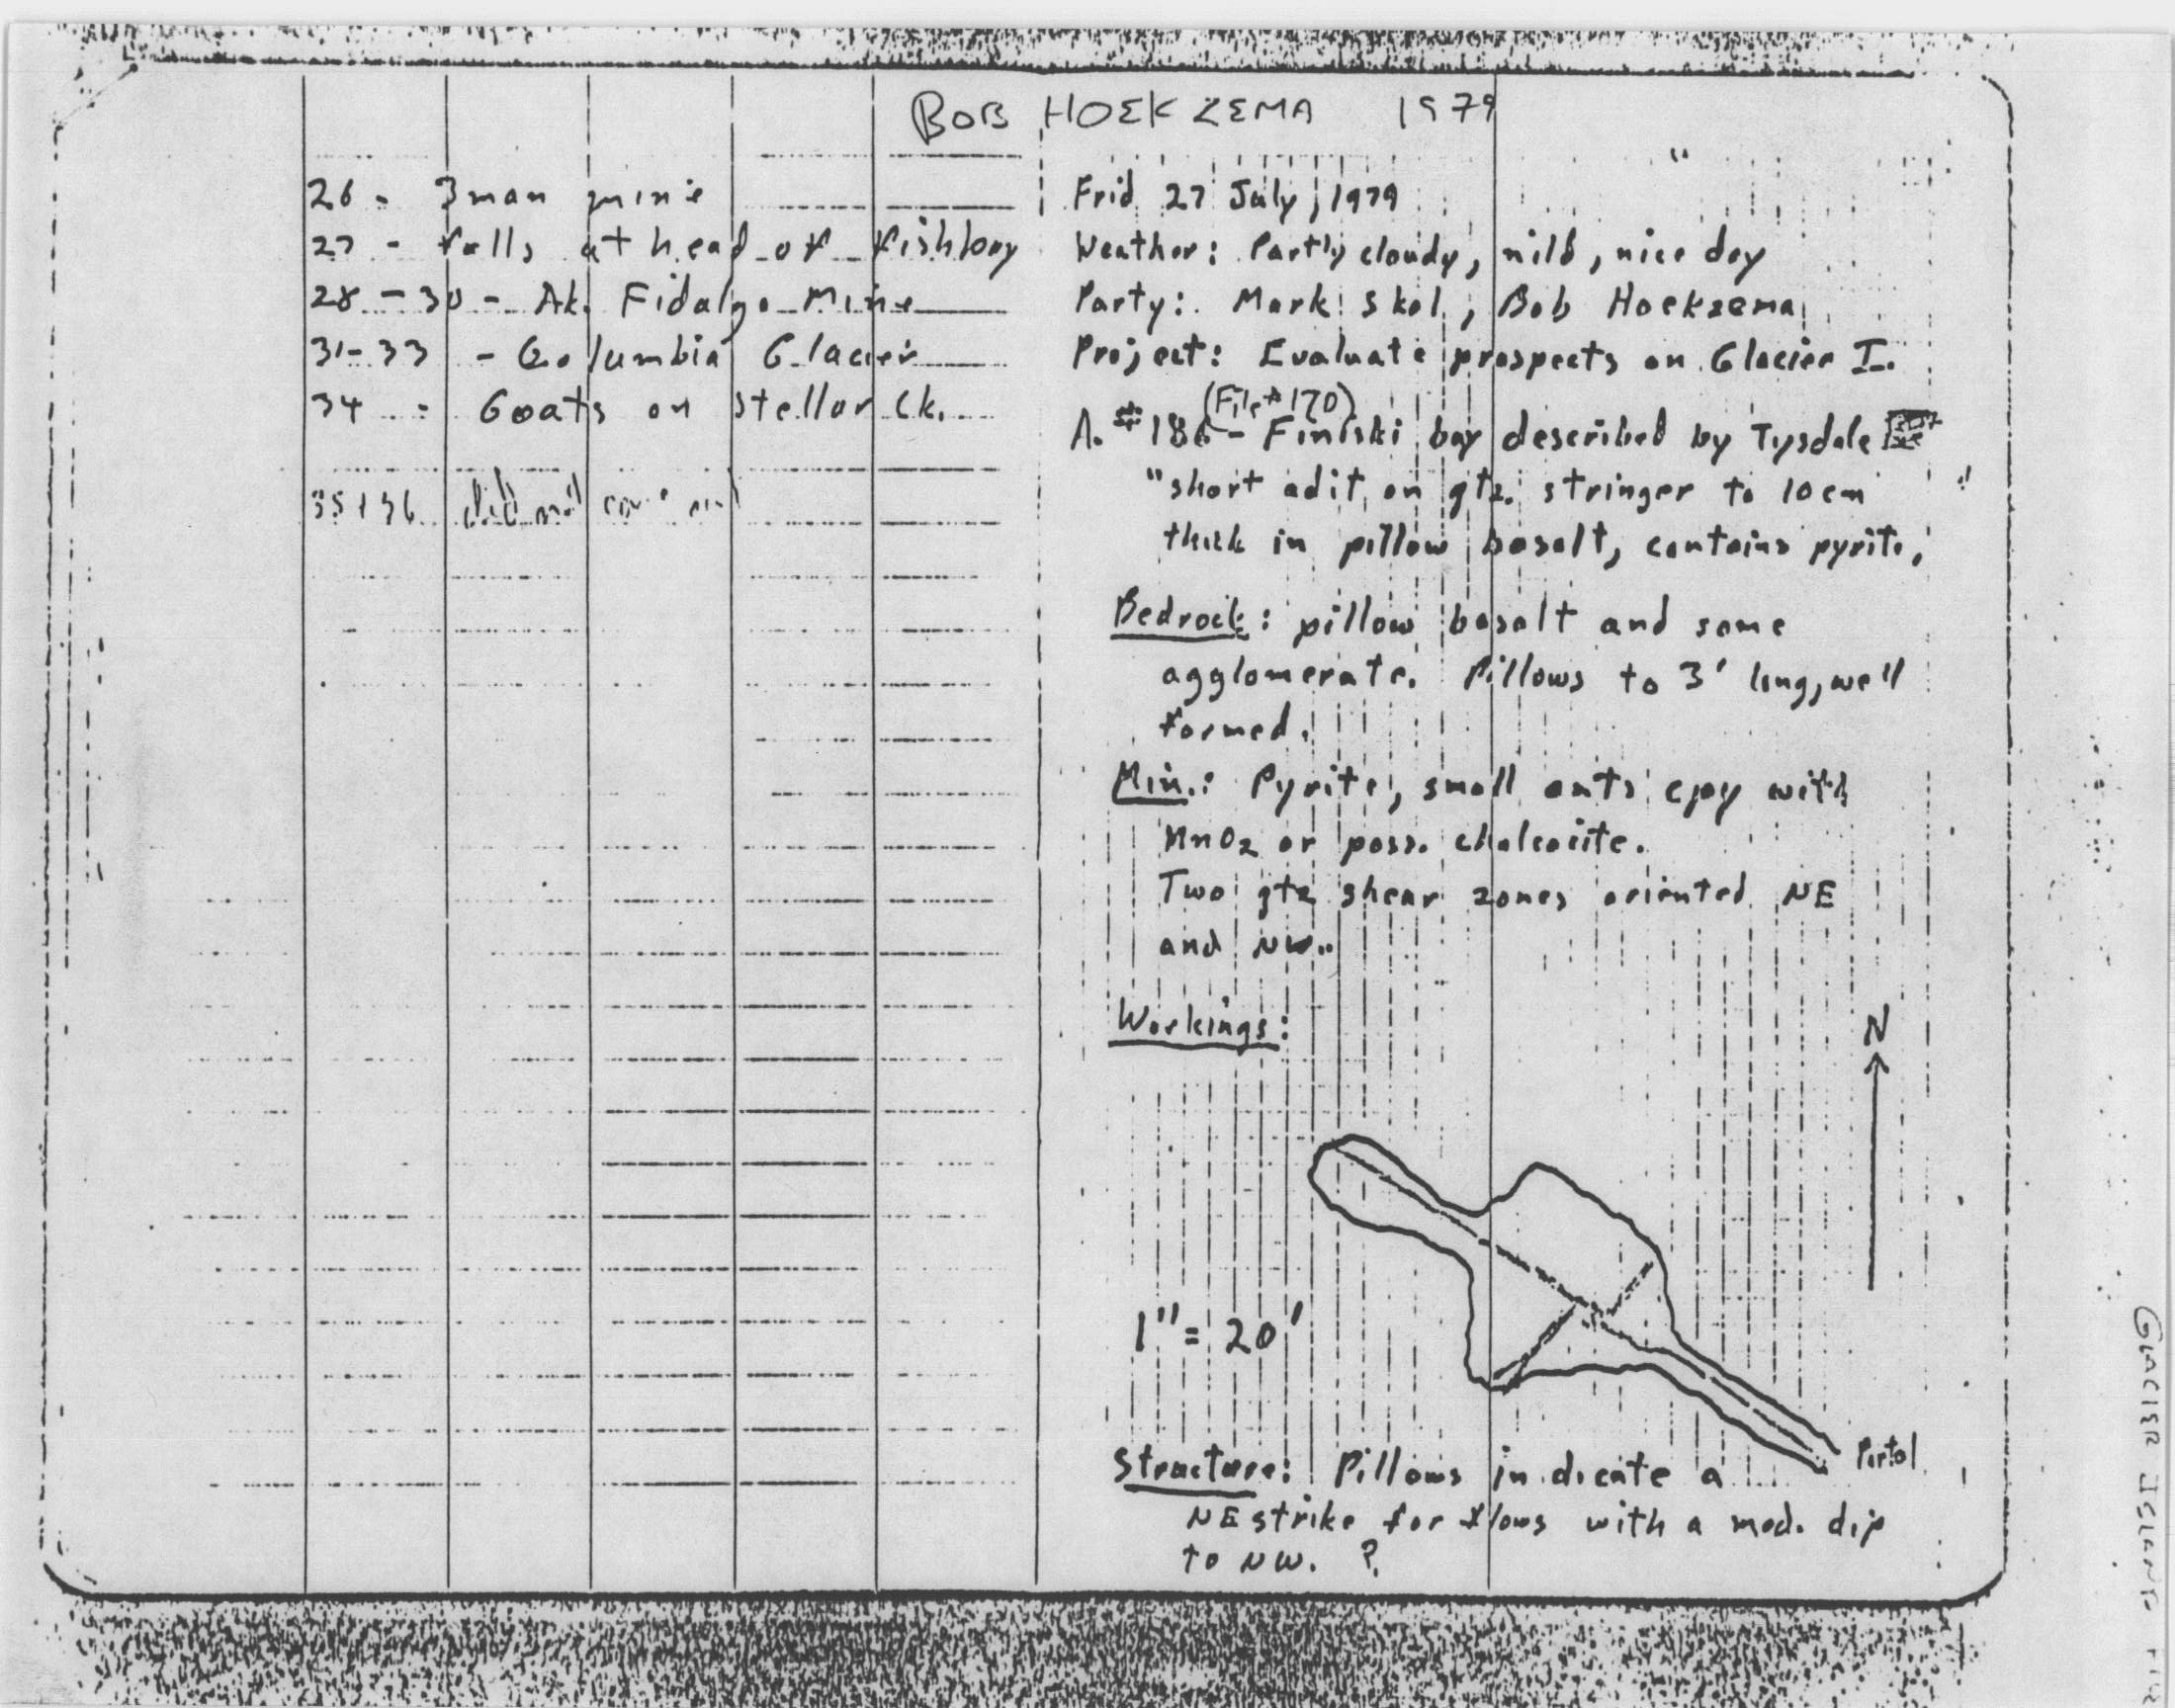 BOB HOEKZEMA 1979
26 - 3 man mine
27 - falls at head of Fish bay
28 - 30 - Ak. Fidalgo Mine
31-33 - Columbia Glacier
34 - Goats on Stellar Ck.
35 + 36 did not come out
Frid 27 July, 1979
Weather: Partly cloudy, mild, nice day
Party: Mark Skol, Bob Hoekzema
Project: Evaluate prospects on Glacier I.
(File # 170)
A. # 186 - Finiski bay described by Tysdale
"short adit on qtz. stringer to 10 cm
thick in pillow basalt, contains pyrite,"
Bedrock: pillow basalt and some
agglomerate. Pillows to 3' long, well
formed.
Min.: Pyrite, small amts cpy with
MnO2 or poss. chalcocite.
Two qtz shear zones oriented NE
and NW..
Workings:
N
1" = 20'
Portal
Structure: Pillows indicate a
NE strike for flows with a mod. dip
to NW. ?
GLACIER ISLAND